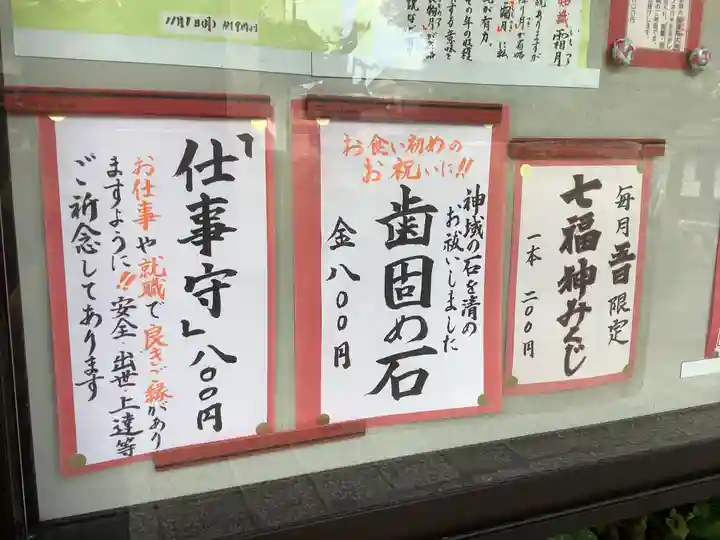 11月1日(月)
霜月
毎月五日限定
七福神みくじ
一本 二〇〇円
お食い初めの
お祝いに!!
神域の石を清の
お祓いしました
歯固め石
金 八〇〇円
「仕事守」八〇〇円
お仕事や就職で良きご縁があり
ますように!!安全・出世・上達等
ご祈念してあります